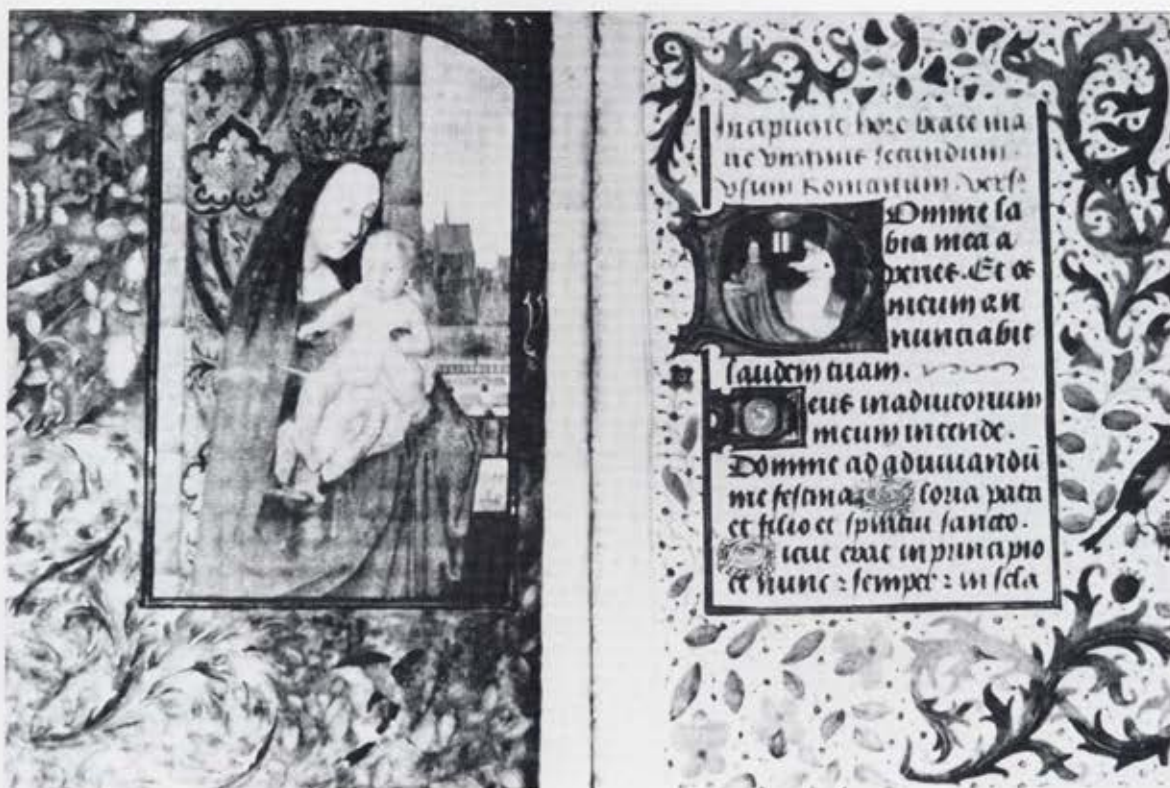 Incipiunt hore beate ma
rie virginis secundum
usum Romanum. vers9
Domine la
bia mea a
peries. Et os
meum an
nunciabit
laudem tuam.
Deus in adiutorium
meum intende.
Domine ad adiuuandū
me festina Gloria patri
et filio et spiritui sancto.
Sicut erat in principio
et nunc ⁊ semper ⁊ in secla